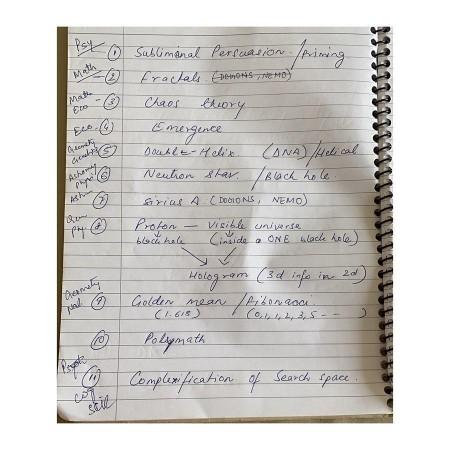 Psy ① Subliminal Persuasion / Priming
Math - ② Fractals (DOGONS, NEMO)
Math Eco - ③ Chaos theory
Eco - ④ Emergence
Geometry ⑤ Double-Helix (DNA) / Helical
Astronomy Phys ⑥ Neutron star / Black hole
Astro ⑦ Sirius A (DOGONS, NEMO)
Qua Phy. ⑧ Proton — Visible universe
black hole (inside a ONE black hole)
Hologram (3d info in 2d)
Geometry ⑨ Golden mean / Fibonacci
(1.618) (0,1,1,2,3,5 - - )
⑩ Polymath
⑪ Complexification of Search space.